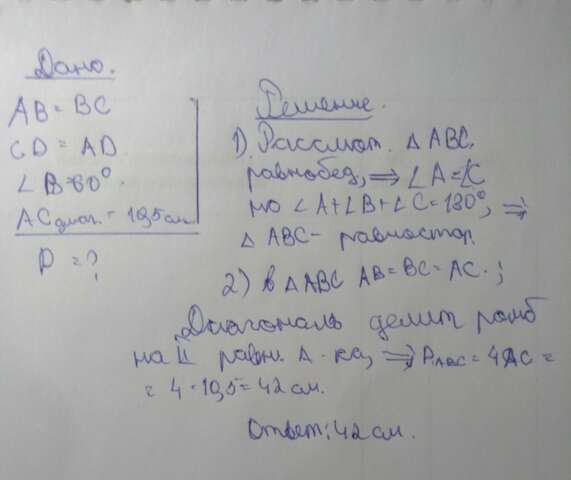 Дано.
AB = BC
CD = AD
∠ B = 60°.
AC диаг. = 10,5 см
P = ?
Решение.
1) Рассмот. △ ABC,
равнобед, ⟹ ∠A = ∠C
но ∠A+∠B+∠C = 180°, ⟹
△ ABC – равностор.
2) в △ ABC AB = BC = AC.;
Диагональ делит ромб
на 2 равн. △-ка, ⟹ P ABC = 4AC =
= 4 · 10,5 = 42 см.
Ответ: 42 см.